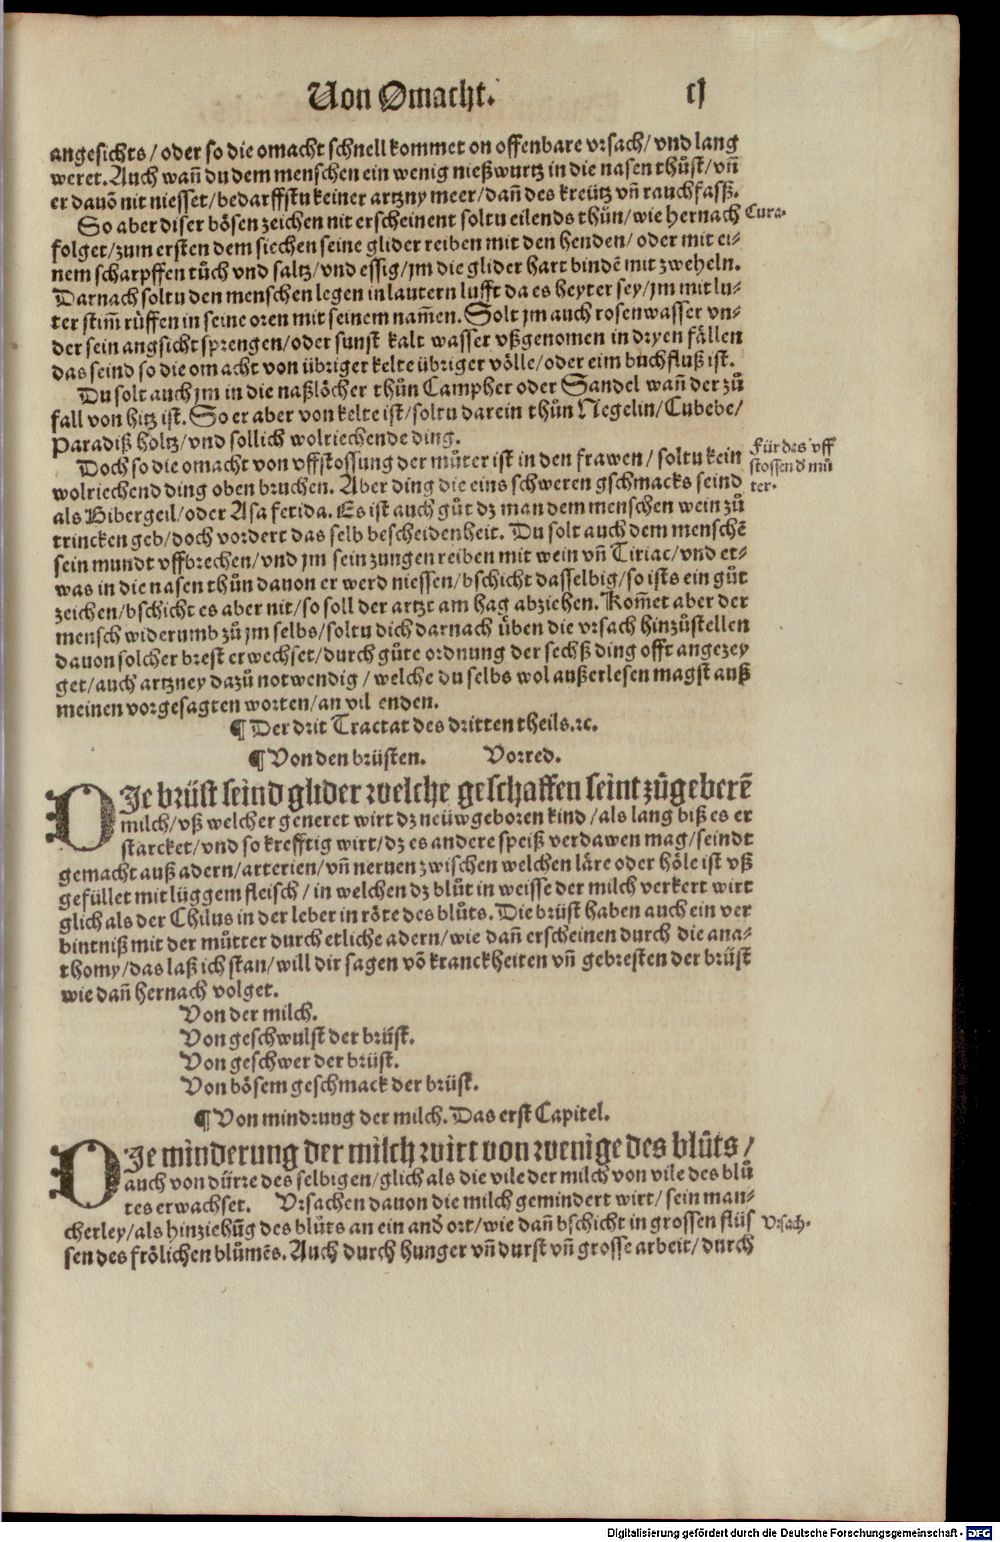 Von Omacht. cj
angesichts / oder so die omacht schnell kommet on offenbare vrsach / vnd lang
weret. Auch wañ du dem menschen ein wenig nießwurtz in die nasen thůst / vñ
er davõ nit niesset / bedarffstu keiner artzny meer / dañ des kreütz vñ rauchfasß.
So aber diser bösen zeichen nit erscheinent soltu eilends thůn / wie hernach Cura.
folget / zum ersten dem siechen seine glider reiben mit den henden / oder mit ei-
nem scharpffen tůch vnd saltz / vnd essig / jm die glider hart bindẽ mit zweheln.
Darnach soltu den menschen legen in lautern lufft da es heyter sey / jm mit lu-
ter stim̃ rüffen in seine oren mit seinem nam̃en. Solt jm auch rosenwasser vn-
der sein angsicht sprengen / oder sunst kalt wasser vßgenomen in dryen fällen
das seind so die omacht von übriger kelte übriger völle / oder eim buchfluß ist.
Du solt auch jm in die naßlöcher thůn Campher oder Sandel wañ der zů
fall von hitz ist. So er aber von kelte ist / soltu darein thůn Negelin / Cubebe /
Paradiß holtz / vnd sollich wolriechende ding.
Doch so die omacht von vffstossung der můter ist in den frawen / soltu kein Für des vff
wolriechend ding oben bruchen. Aber ding die eins schweren gschmacks seind stossend mů
als Bibergeil / oder Asa fetida. Es ist auch gůt dz man dem menschen wein zů ter.
trincken geb / doch vordert das selb bescheidenheit. Du solt auch dem menschẽ
sein mundt vffbrechen / vnd jm sein zungen reiben mit wein vñ Tiriac / vnd et-
was in die nasen thůn dauon er werd niessen / bschicht dasselbig / so ists ein gůt
zeichen / bschicht es aber nit / so soll der artzt am hag abziehen. Kom̃et aber der
mensch widerumb zů jm selbs / soltu dich darnach üben die vrsach hinzůstellen
dauon solcher brest erwechset / durch gůte ordnung der sechß ding offt angezey
get / auch artzney dazů notwendig / welche du selbs wol außerlesen magst auß
meinen vorgesagten worten / an vil enden.
¶ Der drit Tractat des dritten theils. ꝛc.
¶ Von den brüsten. Vorred.
DIe brüst seind glider welche geschaffen seint zůgeberẽ
milch / vß welcher generet wirt dz neüwgeboren kind / als lang biß es er
starcket / vnd so krefftig wirt / dz es andere speiß verdawen mag / seindt
gemacht auß adern / arterien / vñ neruen zwischen welchen läre oder höle ist vß
gefüllet mit lüggem fleisch / in welchen dz blůt in weisse der milch verkert wirt
glich als der Chilus in der leber in röte des blůts. Die brüst haben auch ein ver
bintniß mit der můtter durch etliche adern / wie dañ erscheinen durch die ana-
thomy / das laß ich stan / will dir sagen võ kranckheiten vñ gebresten der brüst
wie dañ hernach volget.
Von der milch.
Von geschwulst der brüst.
Von geschwer der brüst.
Von bösem geschmack der brüst.
¶ Von mindrung der milch. Das erst Capitel.
DIe minderung der milch wirt von wenige des blůts /
auch von dürre des selbigen / glich als die vile der milch von vile des blů
tes erwachset. Vrsachen dauon die milch gemindert wirt / sein man-
cherley / als hinziehũg des blůts an ein and' ort / wie dañ bschicht in grossen flüs Vrsach.
sen des frölichen blůmẽs. Auch durch hunger vñ durst vñ grosse arbeit / durch
Digitalisierung gefördert durch die Deutsche Forschungsgemeinschaft - DFG